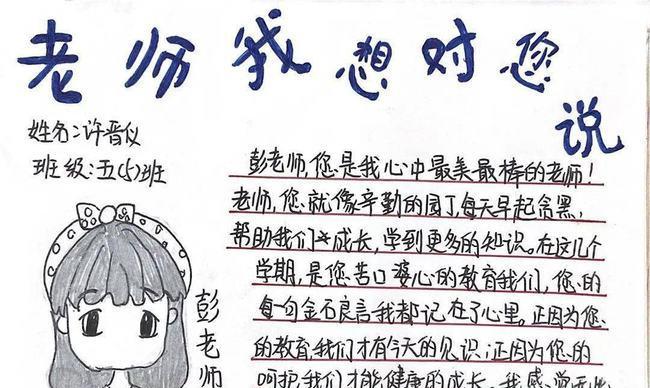 老师我想对您说
姓名:许晋仪
班级:五(5)班
彭老师,您是我心中最美最棒的老师!
老师,您就像辛勤的园丁,每天早起贪黑,
帮助我们成长,学到更多的知识。在这几个
学期,是您苦口婆心的教育我们,您的
每一句金石良言我都记在了心里。正因为您
的教育,我们才有今天的见识;正因为您的
呵护,我们才能健康的成长。我感觉无比
彭老师